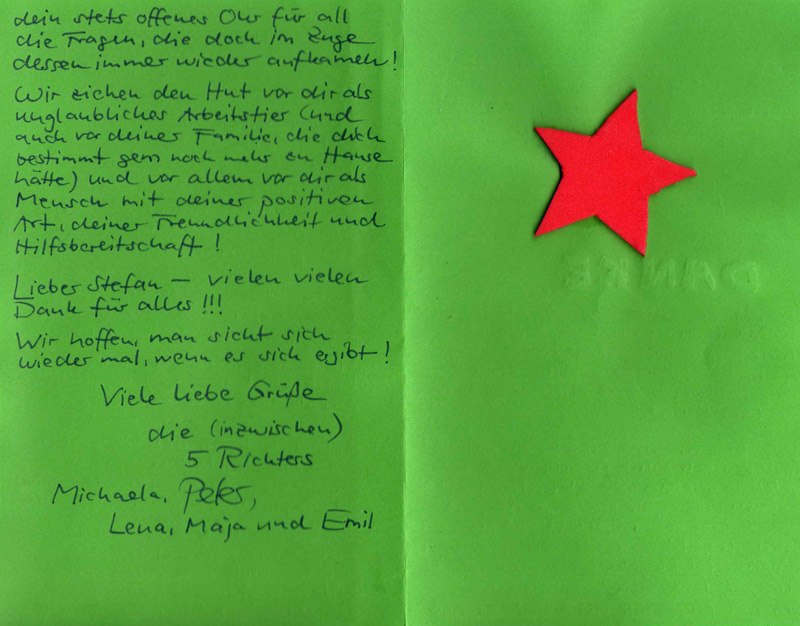 dein stets offenes Ohr für all
die Fragen, die doch im Zuge
dessen immer wieder aufkamen!
Wir ziehen den Hut vor dir als
unglaubliches Arbeitstier (und
auch vor deiner Familie, die dich
bestimmt gern noch mehr zu Hause
hätte) und vor allem vor dir als
Mensch mit deiner positiven
Art, deiner Freundlichkeit und
Hilfsbereitschaft!
Lieber Stefan – vielen vielen
Dank für alles!!!
Wir hoffen, man sieht sich
wieder mal, wenn es sich ergibt!
Viele liebe Grüße
die (inzwischen)
5 Richters
Michaela, Peter,
Lena, Maja und Emil
DANKE